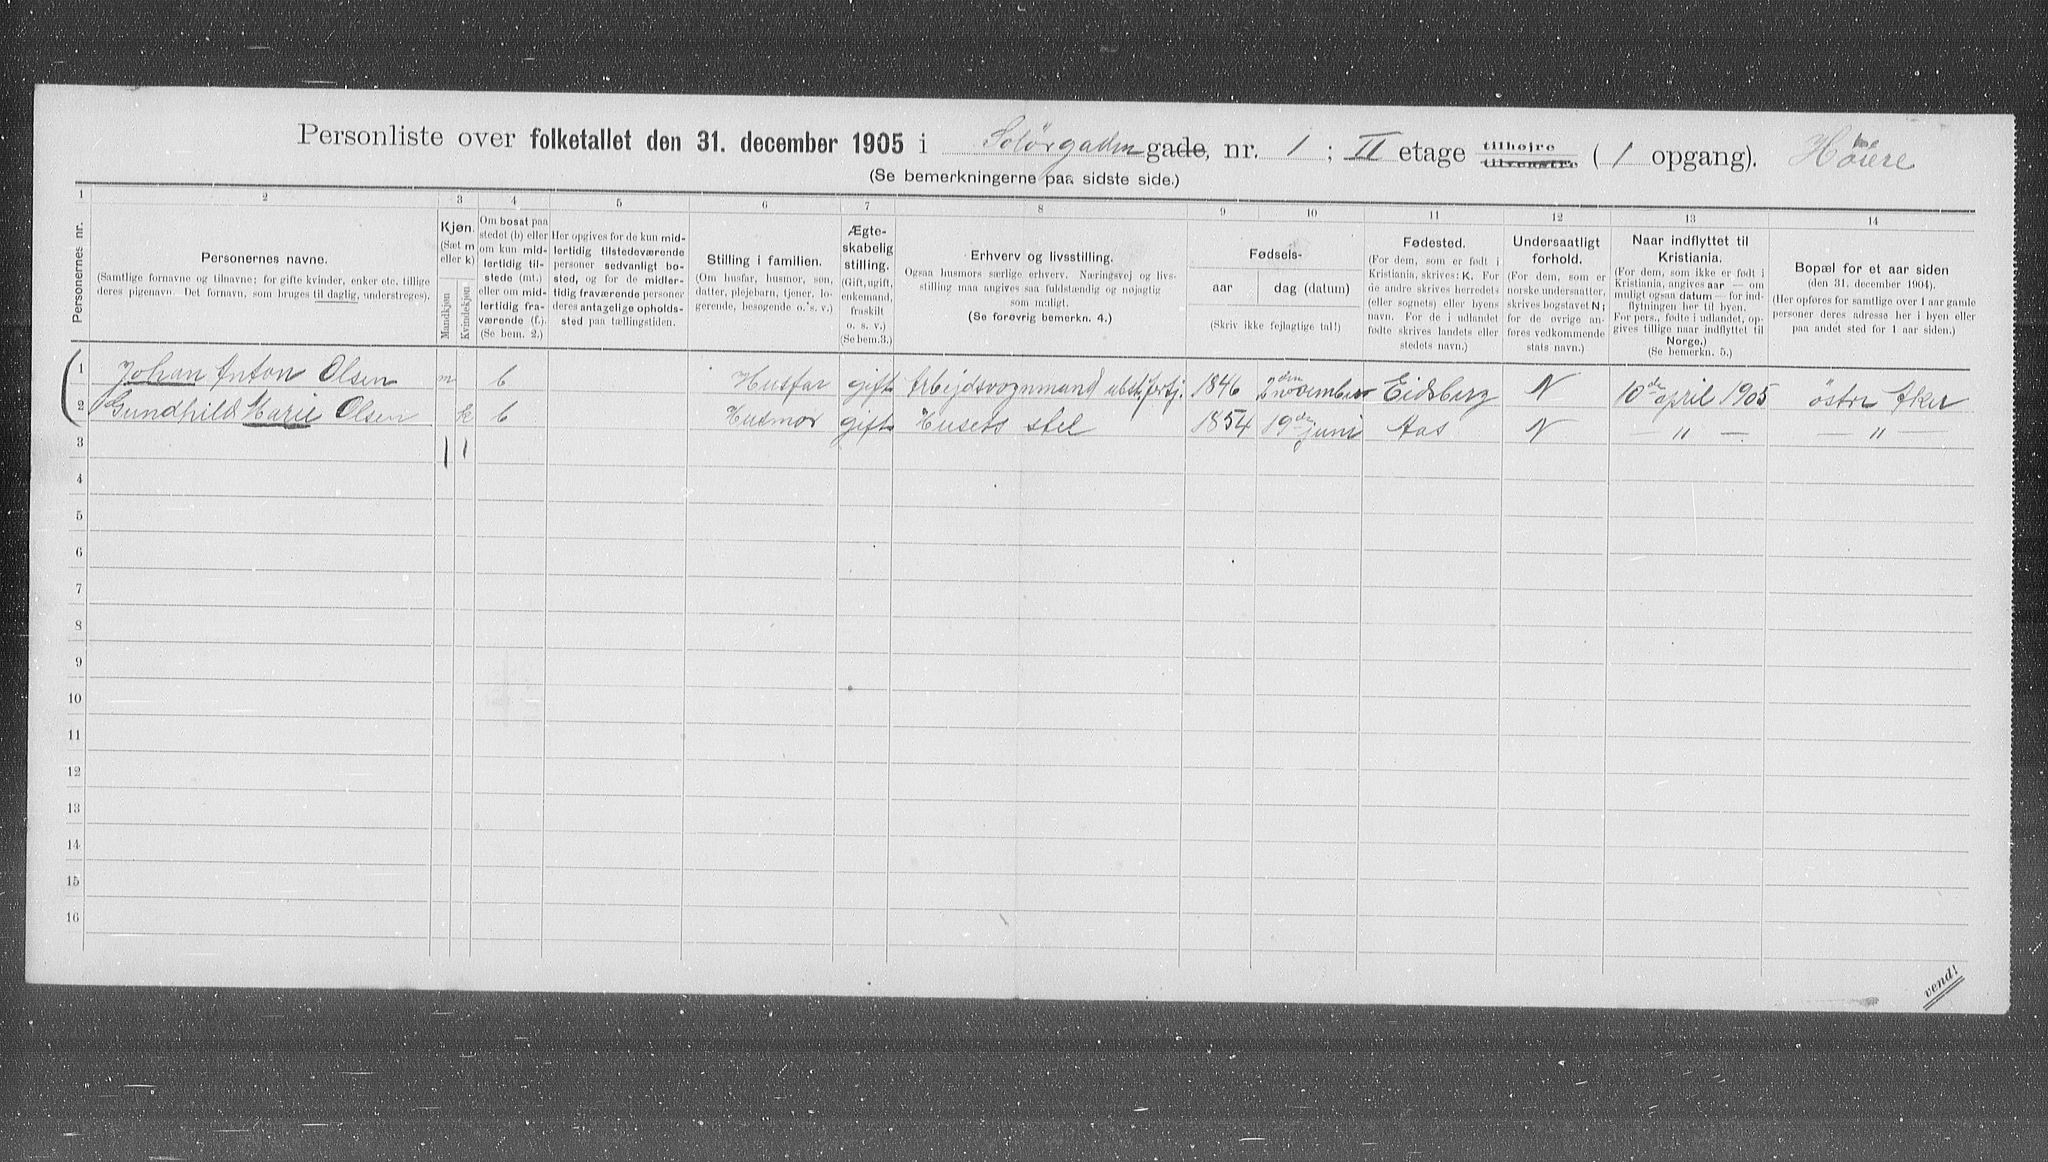 Personliste over folketallet den 31. december 1905 i Solørgaden gade, nr. 1 ; II etage tilhøjre tilvenstre (1 opgang). Høiere
(Se bemerkningerne paa sidste side.)
1 2 3 4 5 6 7 8 9 10 11 12 13 14
Personernes nr.
Personernes navne.
(Samtlige fornavne og tilnavne; for gifte kvinder, enker etc. tillige
deres pigenavn. Det fornavn, som bruges til daglig, understreges).
Kjøn.
(Sæt m
eller k)
Mandkjøn
Kvindekjøn
Om bosat paa
stedet (b) eller
om kun mid-
lertidig til-
stede (mt.)
eller om mid-
lertidig fra-
værende (f.).
(Se bem. 2.)
Her opgives for de kun mid-
lertidig tilstedeværende
personer sedvanligt bo-
sted, og for de midler-
tidig fraværende personer
deres antagelige opholds-
sted paa tællingstiden.
Stilling i familien.
(Om husfar, husmor, søn,
datter, plejebarn, tjener, lo-
gerende, besøgende o. s. v.)
Ægte-
skabelig
stilling.
(Gift, ugift,
enkemand,
fraskilt
o. s. v.)
(Se bem.3.)
Erhverv og livsstilling.
Ogsaa husmors særlige erhverv. Næringsvej og livs-
stilling maa angives saa fuldstændig og nøjagtig
som muligt.
(Se forøvrig bemerkn. 4.)
Fødsels-
aar
dag (datum)
(Skriv ikke fejlagtige tal!)
Fødested.
(For dem, som er født i
Kristiania, skrives: K. For
de andre skrives herredets
(eller sognets) eller byens
navn. For de i udlandet
fødte skrives landets eller
stedets navn.)
Undersaatligt
forhold.
(For dem, som er
norske undersaatter,
skrives bogstavet N;
for de øvrige an-
føres vedkommende
stats navn.)
Naar indflyttet til
Kristiania.
(For dem, som ikke er født i
Kristiania, angives aar — om
muligt ogsaa datum — for ind-
flytningen her til byen.
For pers., fødte i udlandet, op-
gives tillige naar indflyttet til
Norge.)
(Se bemerkn. 5.)
Bopæl for et aar siden
(den 31. december 1904).
(Her opføres for samtlige over 1 aar gamle
personer deres adresse her i byen eller
paa andet sted for 1 aar siden.)
1 Johan Anton Olsen m b Husfar gift Arbejdsvognmand 1846 2den november Eidsberg N 10de april 1905 östre Aker
2 Gundhild Marie Olsen k b Husmor gift Husets stel 1854 19de juni Aas N — " — — " —
3 1 1
4
5
6
7
8
9
10
11
12
13
14
15
16
vend!